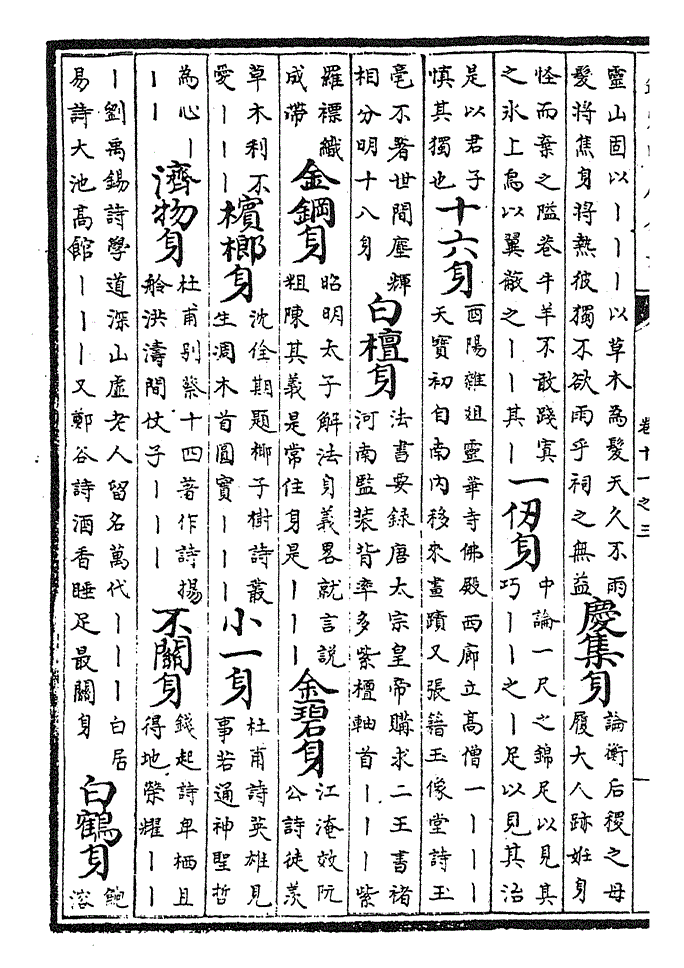 卷十一之三
靈山固以丨丨丨以草木為髮天久不雨
髮將焦身將熱彼獨不欲雨乎祠之無益
慶集身
論衡后稷之母
履大人跡姙身
怪而棄之隘巷牛羊不敢踐寘
之氷上鳥以翼蔽之丨丨其丨
一仞身
中論一尺之錦足以見其
巧丨丨之丨足以見其治
是以君子
慎其獨也
十六身
酉陽雜俎靈華寺佛殿西廊立高僧一丨丨丨
天寶初自南内移來畫蹟又張籍玉像堂詩玉
毫不著世間塵輝
相分明十八身
白檀身
法書要録唐太宗皇帝購求二王書禇
河南監装背率多紫檀軸首丨丨丨紫
羅褾織
成滯
金鋼身
昭明太子解法身義畧就言説
粗陳其義是常住身是丨丨丨
金碧身
江淹效阮
公詩徒羨
草木利不
愛丨丨丨
檳榔身
沈佺期題椰子樹詩叢
生凋木首圓實丨丨丨
小一身
杜甫詩英雄見
事若通神聖哲
為心丨
丨丨
濟物身
杜甫别蔡十四著作詩揚
舲洪濤間仗子丨丨丨
不關身
錢起詩卑栖且
得地榮耀丨丨
丨劉禹錫詩學道深山虛老人留名萬代丨丨丨白居
易詩大池高館丨丨丨又鄭谷詩酒香睡足最關身
白鶴身
鮑
溶